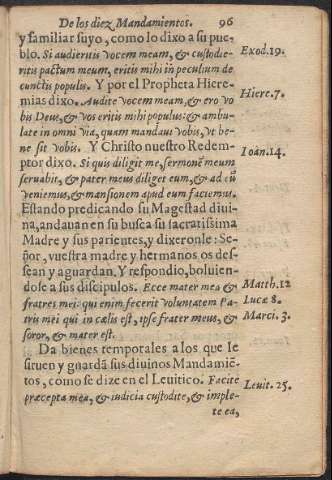 De los diez Mandamientos. 96
y familiar suyo, como lo dixo a su pue-
blo. Si audieritis vocem meam, & custodie-
Exod.19.
ritis pactum meum, eritis mihi in peculium de
cunctis populis. Y por el Propheta Hiere-
Hiere.7.
mias dixo. Audite vocem meam, & ero vo
bis Deus, & vos eritis mihi populus: & ambu-
late in omni via, quam mandaui vobis, vt be-
ne sit vobis. Y Christo nuestro Redem-
Ioan.14.
ptor dixo. Si quis diligit me, sermonē meum
seruabit, & pater meus diliget eum, & ad eū
veniemus, & mansionem apud eum faciemus.
Estando predicando su Magestad diui-
na, andauan en su busca su sacratissima
Madre y sus parientes, y dixeronle: Se-
ñor, vuestra madre y hermanos os des-
sean y aguardan. Y respondio, boluien-
dose a sus discipulos. Ecce mater mea &
Matth.12
fratres mei: qui enim fecerit voluntatem Pa-
Lucæ 8.
tris mei qui in cælis est, ipse frater meus, &
Marci. 3.
soror, & mater est.
Da bienes temporales a los que le
siruen y guardā sus diuinos Mandamiē-
tos, como se dize en el Leuitico. Facite
Leuit. 25.
præcepta mea, & iudicia custodite, & imple-
te ea,